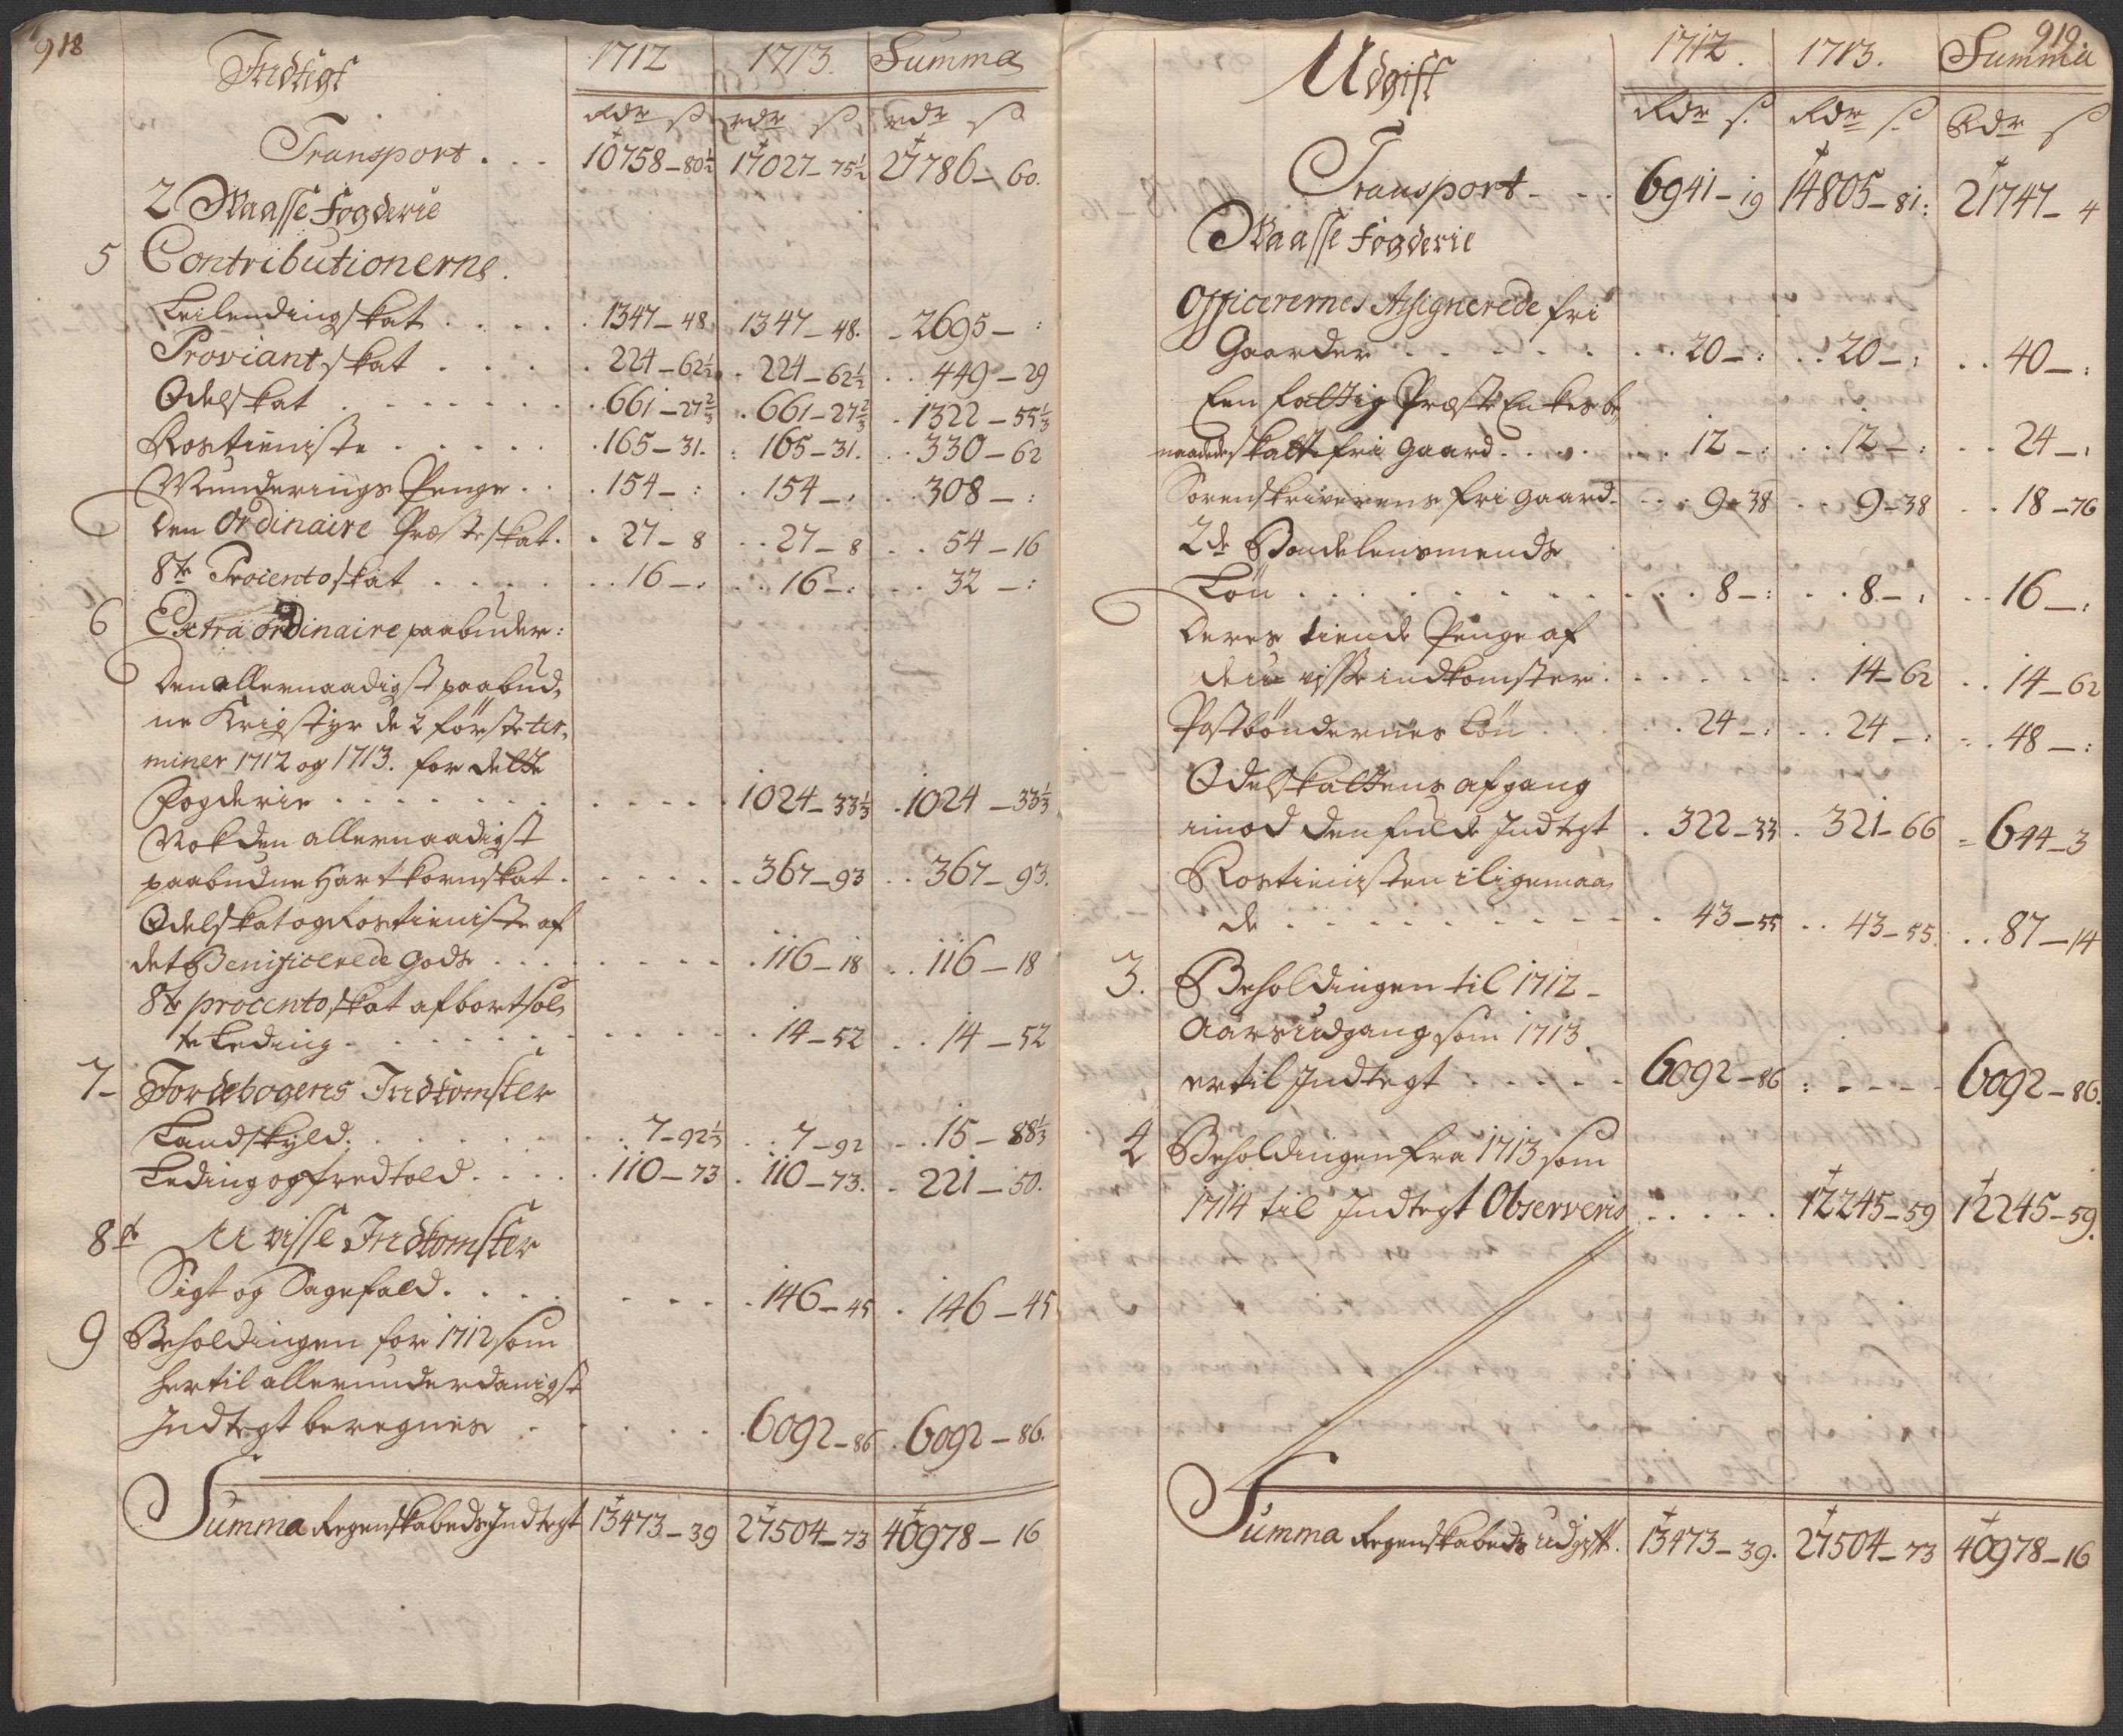 918
Indtegt 1712 1713. Summa
Rdr ß rdr ß rdr ß
Transport . . . 10758–80½ 17027–75½ 27786– 60.
2 Maasse Fogderie
5 Contributionerne.
Leilendingskat . . . . . 1347–48 1347–48. – 2695– :
Proviantskat . . . . . 224–62½ . 224–62½ . . 449–29
Odelskat . . . . . . . 661–27⅔ . 661–27⅔ . 1322–55⅓
Rostieniste . . . . . . 165–31. : 165–31. . . 330–62
Munderings Penge . . . 154– : . 154– : . . 308– :
Den Ordinaire Præsteskat . . 27–8 . . 27–8 . . 54–16
8te Procento skat . . . . . . 16– : . . 16– : . . 32– :
6 Extra ordinaire paabuder:
Den allernaadigst paabud,
ne Krigstyr de 2 förste ter,
miner 1712 og 1713. for dette
Fogderie . . . . . . . . . . 1024–33⅓ . 1024–33⅓
Nok den allernaadigst
paabudne Hartkornskat . . . . . . 367–93 . . 367–93.
Odelskat og Rostieniste af
det Benificerede Gods . . . . . . . 116–18 . . 116–18
8te procento skat af bortsol,
te Leding . . . . . . . . 14–52 . . 14–52
7– Jordebogens Indkomster
Landskyld . . . . . . . . 7–92⅓ . . 7–92 . . 15–88⅓
Leding og fredtold . . . . . 110–73 . 110–73. . 221–50.
8te Uvisse Indkomster
Sigt og Sagefald . . . . . . . . 146–45 . 146–45
9 Beholdingen for 1712 som
hertil allerunderdanigst
Indtegt beregnes . . . . . . 6092–86 . 6092–86.
Summa Regenskabeds Indtegt 13473–39 27504–73 40978–16
919
Udgift 1712. 1713. Summa
Rdr ß. Rdr ß. Rdr ß
Transport . . . 6941–19 14805–81: 21747–4
Maasse Fogderie
Officerernes Assignerede fri
Gaarder . . . . . . . . 20– : . . 20– : . . 40– :
Een fattig Præste Enkes be,
naadede skatte fri Gaard . . . . . 12– : . . 12– : . . 24– :
Sorenskriverens fri gaard . . . 9–38 . . 9–38 . . 18–76
2de Bondelensmends
Lön . . . . . . . . . . . 8– : . . 8– : . . 16– :
Deres tiende Penge af
de u visse indkomster . . . . . . . 14–62 . . 14–62
Postböndernes Lön . . . . . . 24– : . . 24– : . . 48– :
Odelskattens afgang
imod den fulde Indtegt . 322–33 . 321–66 – 644–3
Rostienisten i ligemaa,
de . . . . . . . . . . 43–55 . . 43–55. . . 87–14
3. Beholdingen til 1712–
Aars udgang som 1713
er til Indtegt . . . . . 6092–86 : – – – 6092–86.
4 Beholdingen fra 1713 som
1714 til Indtegt Observeris . . . . . 12245–59 12245–59.
Summa Regenskabeds udgift. 13473–39. 27504–73 40978–16